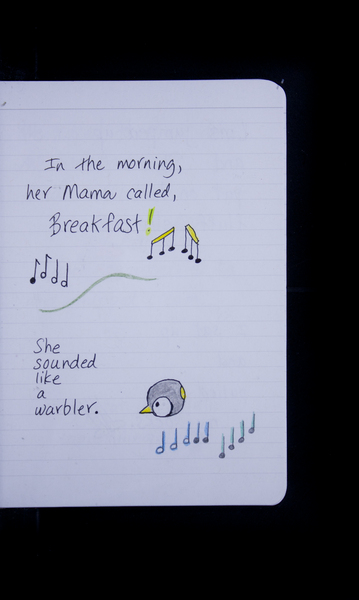 In the morning,
her Mama called,
Breakfast!
She
sounded
like
a
warbler.